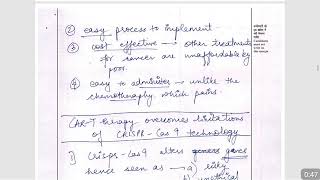 ② easy process to implement
③ cost effective → other treatments
for cancer are unaffordable by
poor.
④ easy to administer → unlike the
chemotherapy which pains.
CAR-T therapy overcomes limitations
of CRISPR-Cas 9 technology
1) Crispr-Cas9 alters genes
hence seen as → a) risky
b) unethical
0:47